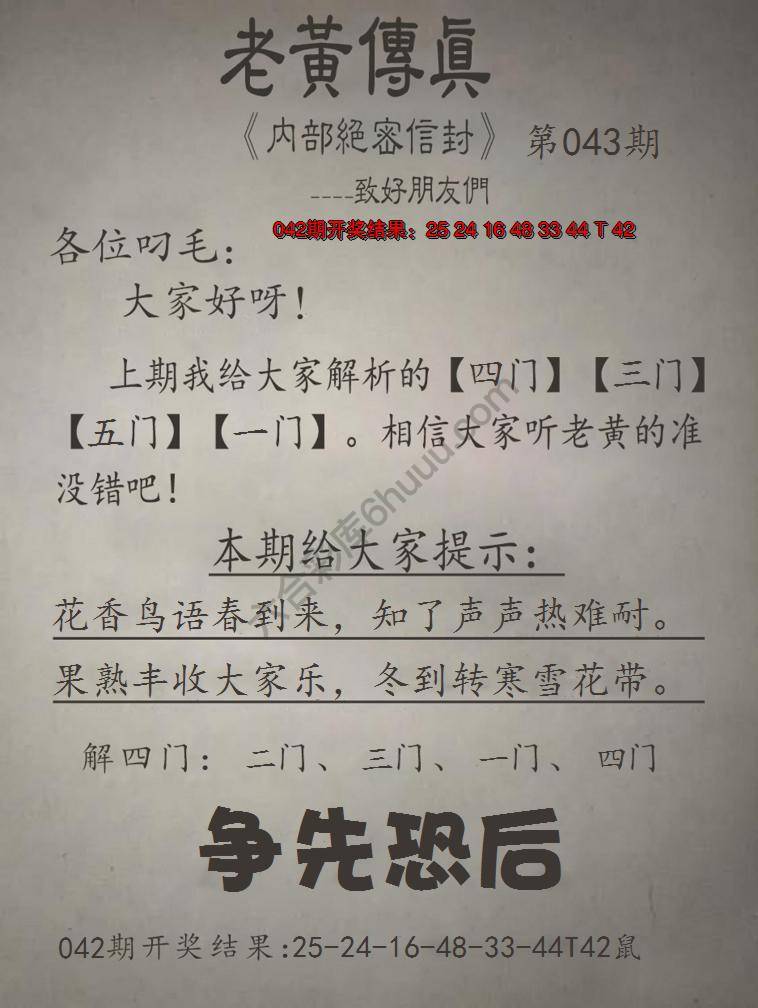 老黃傳真
《内部絕密信封》 第043期
----致好朋友們
042期开奖结果：25 24 16 48 33 44 T 42
各位叼毛：
大家好呀！
上期我给大家解析的【四门】【三门】
【五门】【一门】。相信大家听老黄的准
没错吧！
六合彩库6huuu.com
本期给大家提示：
花香鸟语春到来，知了声声热难耐。
果熟丰收大家乐，冬到转寒雪花带。
解四门： 二门、 三门、 一门、 四门
争先恐后
042期开奖结果:25-24-16-48-33-44T42鼠